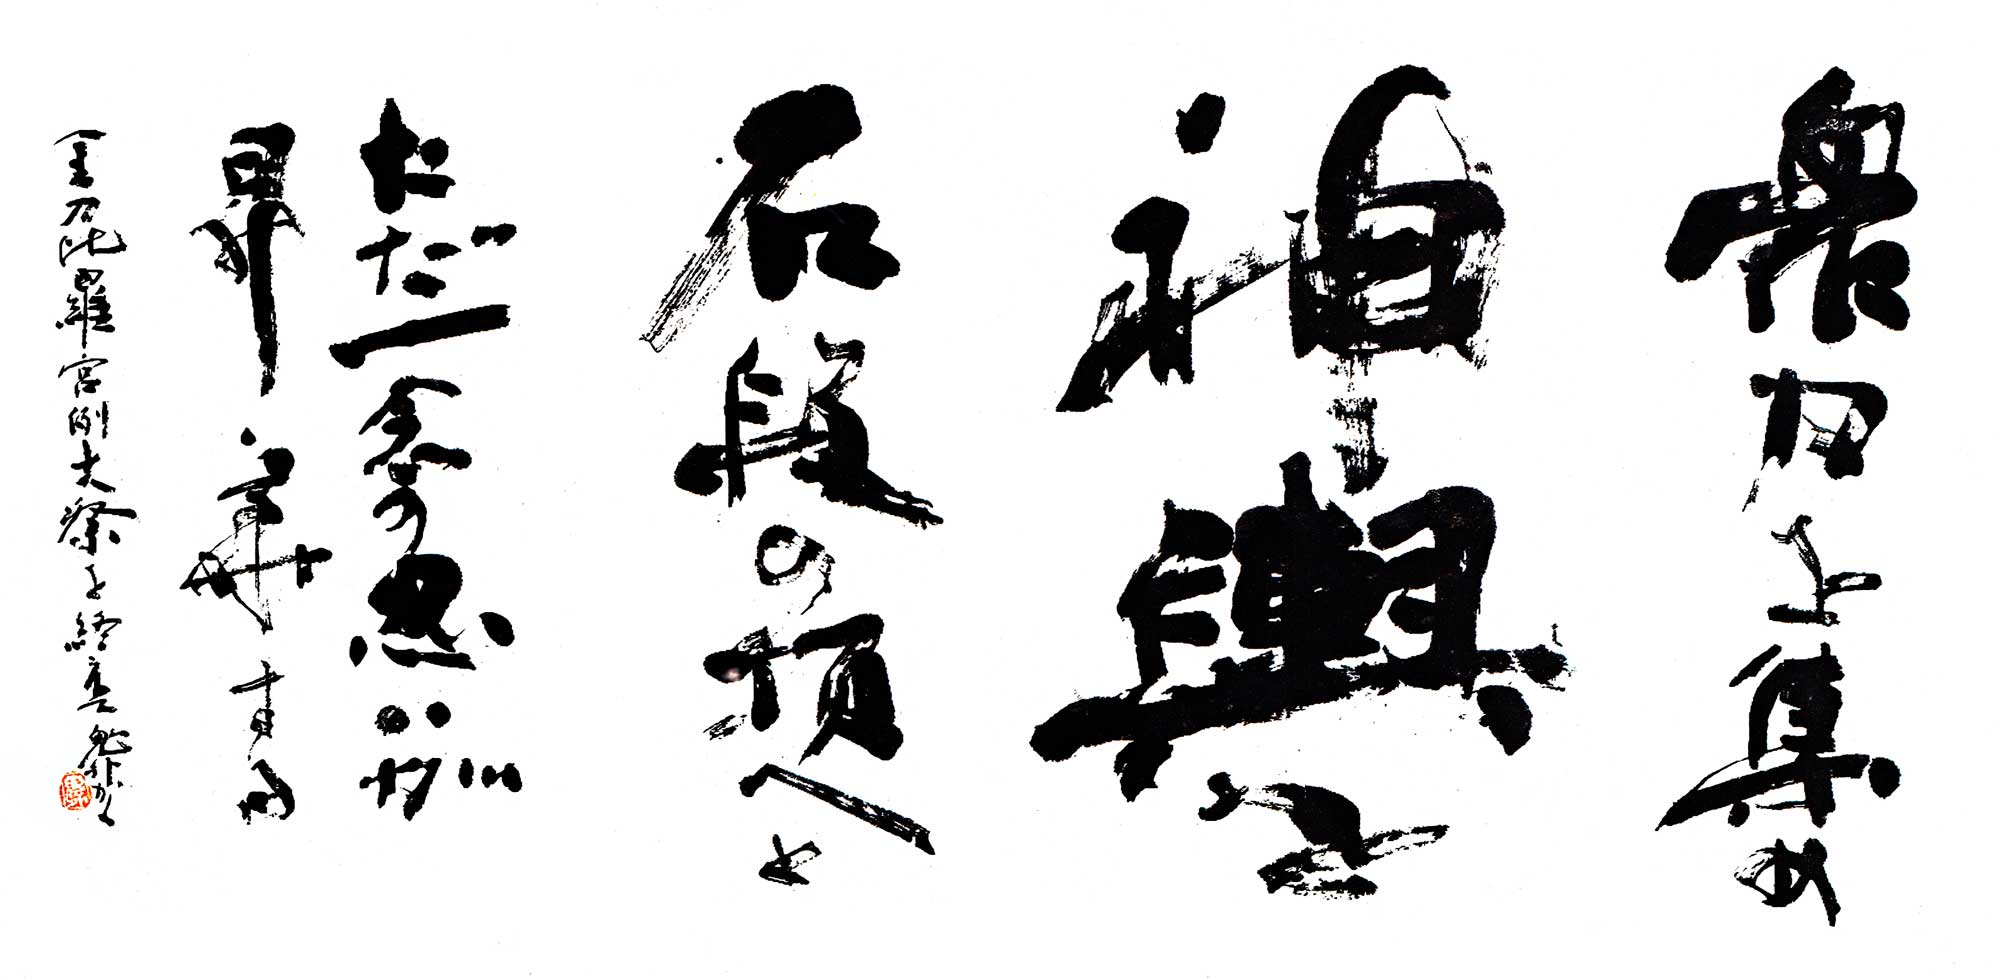 衆力を集め
神輿を
石段の頂へと
ただ一念の思いが
昇華する
金刀比羅宮例大祭を終え